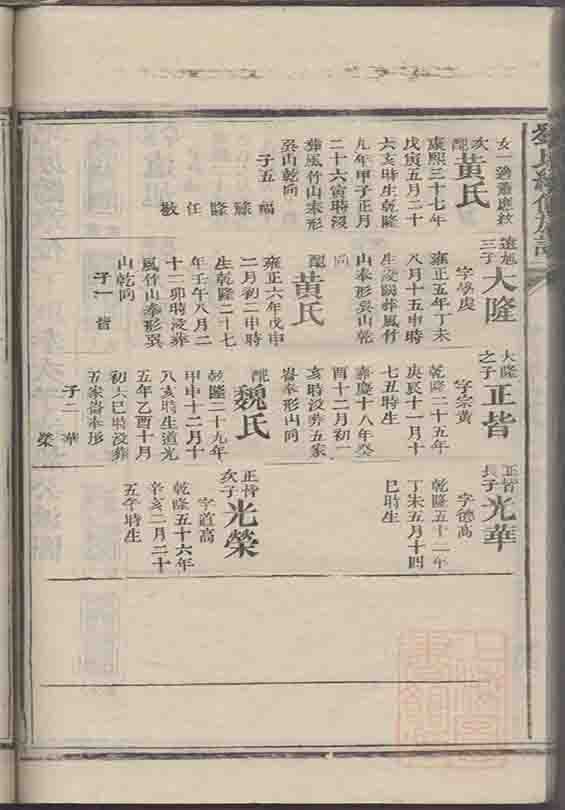 女一適蕭應紋
次配黃氏
康熙三十七年
戊寅五月二十
六亥時生乾隆
九年甲子正月
二十六寅時沒
葬風竹山奉形
巽山乾向
子五
福
隆
任
敏
遠旭三子大隆
字學虔
雍正五年丁未
八月十五申時
生沒闕葬風竹
山奉形巽山乾
向
配黃氏
雍正六年戊申
二月初二申時
生乾隆二十七
年壬午八月二
十二卯時沒葬
風竹山奉形巽
山乾向
子一 皆
大隆之子正皆
字宗黃
乾隆二十五年
庚辰十一月十
七丑時生
嘉慶十八年癸
酉十二月初一
亥時沒葬五家
畬奉形山同
配魏氏
乾隆二十九年
甲申十二月十
八亥時生道光
五年乙酉十月
初六巳時沒葬
五家畬奉形
子二 華
榮
正皆長子光華
字德高
乾隆五十二年
丁未五月十四
巳時生
正皆次子光榮
字道高
乾隆五十六年
辛亥二月二十
五午時生